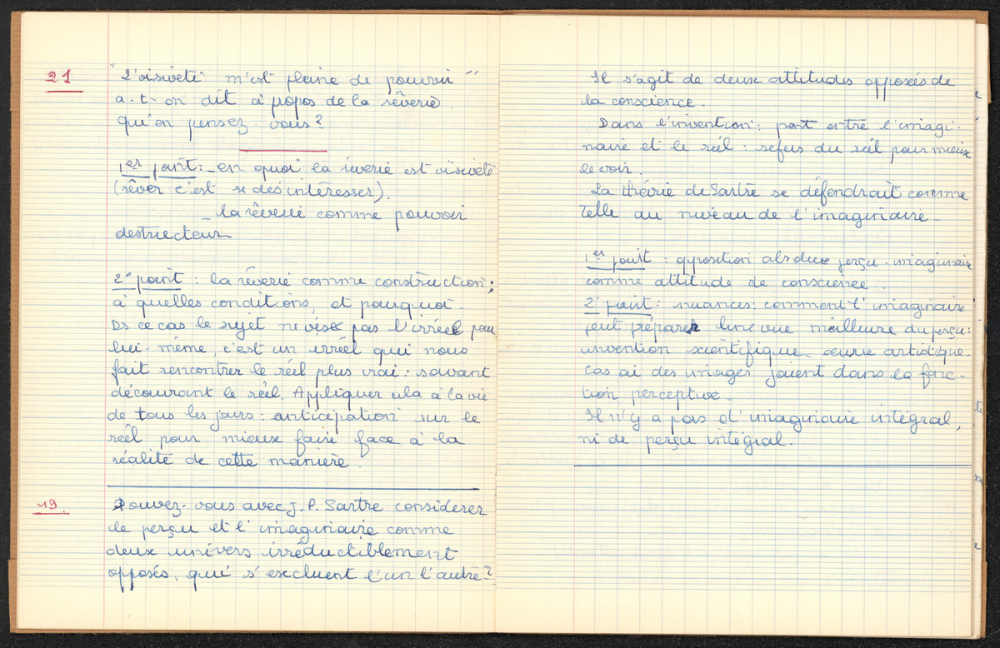 21
"L'oisiveté m'est pleine de pouvoir"
a-t-on dit à propos de la rêverie.
qu'en pensez-vous?
1er point: - en quoi la rêverie est oisiveté
(rêver c'est se desintéresser).
- la rêverie comme pouvoir
destructeur
2e point : la rêverie comme construction;
à quelles conditions, et pourquoi.
Ds ce cas le sujet ne vise pas l'irréel pour
lui-même, c'est un irréel qui nous
fait rencontrer le réel plus vrai : savant
découvrant le réel. Appliquer cela à la vie
de tous les jours : anticipation sur le
réel pour mieux faire face à la
réalité de cette manière.
19.
Pouvez-vous avec J.P. Sartre considérer
le perçu et l'imaginaire comme
deux univers irréductiblement
opposés, qui s'excluent l'un l'autre?
Il s'agit de deux attitudes opposés de
la conscience.
Dans l'invention : pont entre l'imagi-
naire et le réel : refus du réel pour mieux
le voir.
La théorie de Sartre se défendrait comme
telle au niveau de l'imaginaire.
1er point : opposition absolue perçu-imaginaire
comme attitude de conscience.
2e point : nuances : comment l'imaginaire
peut préparer une vue meilleure du perçu :
invention scientifique œuvre artistique.
cas où des images jouent dans la fonc-
tion perceptive.
Il n'y a pas d'imaginaire intégral,
ni de perçu intégral.